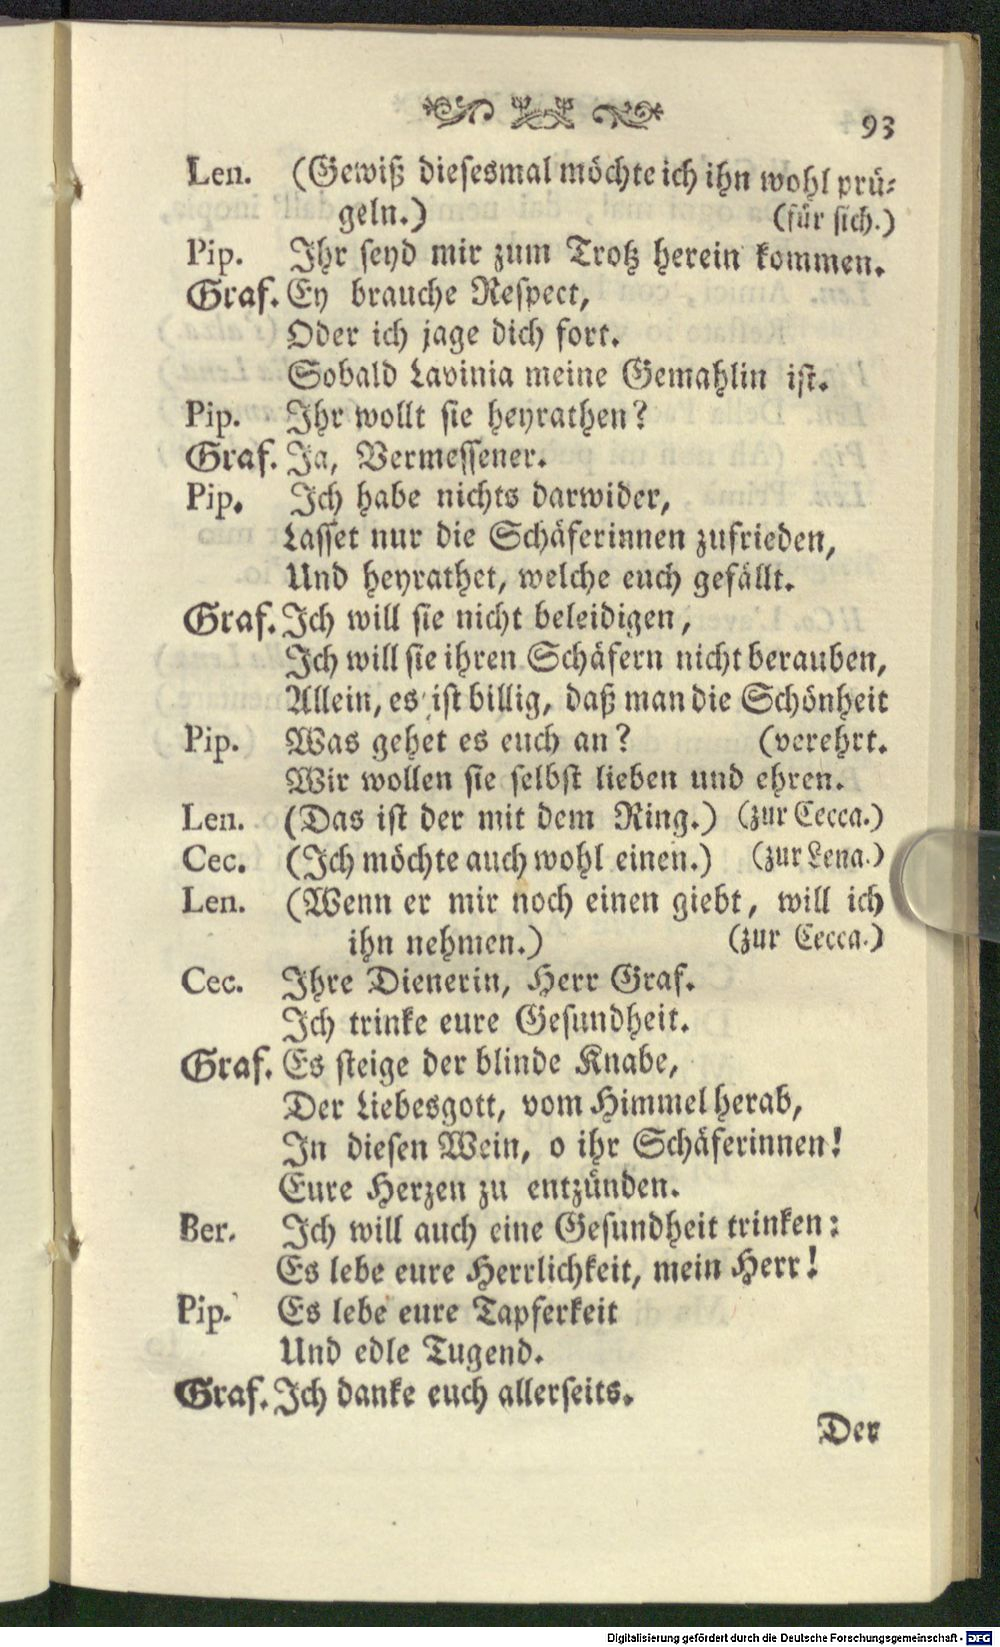 93
Len. (Gewiß diesesmal möchte ich ihn wohl prü-
geln.) (für sich.)
Pip. Ihr seyd mir zum Trotz herein kommen.
Graf. Ey brauche Respect,
Oder ich jage dich fort.
Sobald Lavinia meine Gemahlin ist.
Pip. Ihr wollt sie heyrathen?
Graf. Ja, Vermessener.
Pip. Ich habe nichts darwider,
Lasset nur die Schäferinnen zufrieden,
Und heyrathet, welche euch gefällt.
Graf. Ich will sie nicht beleidigen,
Ich will sie ihren Schäfern nicht berauben,
Allein, es ist billig, daß man die Schönheit
Pip. Was gehet es euch an? (verehrt.
Wir wollen sie selbst lieben und ehren.
Len. (Das ist der mit dem Ring.) (zur Cecca.)
Cec. (Ich möchte auch wohl einen.) (zur Lena.)
Len. (Wenn er mir noch einen giebt, will ich
ihn nehmen.) (zur Cecca.)
Cec. Ihre Dienerin, Herr Graf.
Ich trinke eure Gesundheit.
Graf. Es steige der blinde Knabe,
Der Liebesgott, vom Himmel herab,
In diesen Wein, o ihr Schäferinnen!
Eure Herzen zu entzünden.
Ber. Ich will auch eine Gesundheit trinken:
Es lebe eure Herrlichkeit, mein Herr!
Pip. Es lebe eure Tapferkeit
Und edle Tugend.
Graf. Ich danke euch allerseits.
Der
Digitalisierung gefördert durch die Deutsche Forschungsgemeinschaft - DFG